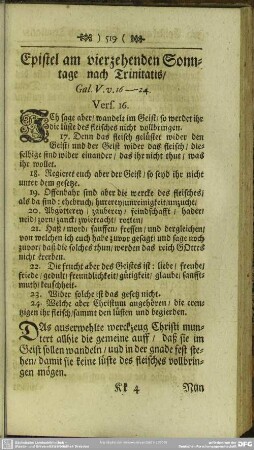 ( 519 )
Epistel am vierzehenden Sonn-
tage nach Trinitatis/
Gal. V. v. 16—24.
Vers. 16.
ICh sage aber/ wandelt im Geist/ so werdet ihr
die lüste des fleisches nicht vollbringen.
17. Denn das fleisch gelüstet wider den
Geist/ und der Geist wider das fleisch/ die-
selbige sind wider einander/ das ihr nicht thut/ was
ihr wollet.
18. Regieret euch aber der Geist/ so seyd ihr nicht
unter dem gesetze.
19. Offenbahr sind aber die wercke des fleisches/
als da sind: ehebruch/ hurerey/ unreinigkeit/ unzucht/
20. Abgötterey/ zauberey/ feindschafft/ hader/
neid/ zorn/ zanck/ zwietracht/ rotten/
21. Haß/ mord/ sauffen/ fressen/ und dergleichen/
von welchen ich euch habe zuvor gesagt/ und sage noch
zuvor/ daß die solches thun/ werden das reich GOttes
nicht ererben.
22. Die frucht aber des Geistes ist: liebe/ freude/
friede/ gedult/ freundligkeit/ gütigkeit/ glaube/ sanfft-
muth/ keuschheit.
23. Wider solche ist das gesetz nicht.
24. Welche aber Christum angehören/ die creu-
tzigen ihr fleisch/ sammt den lüsten und begierden.
DAs auserwehlte werckzeug Christi mun-
tert allhie die gemeine auff/ daß sie im
Geist sollen wandeln/ und in der gnade fest ste-
hen/ damit sie keine lüste des fleisches vollbrin-
gen mögen.
Kk 4
Nun